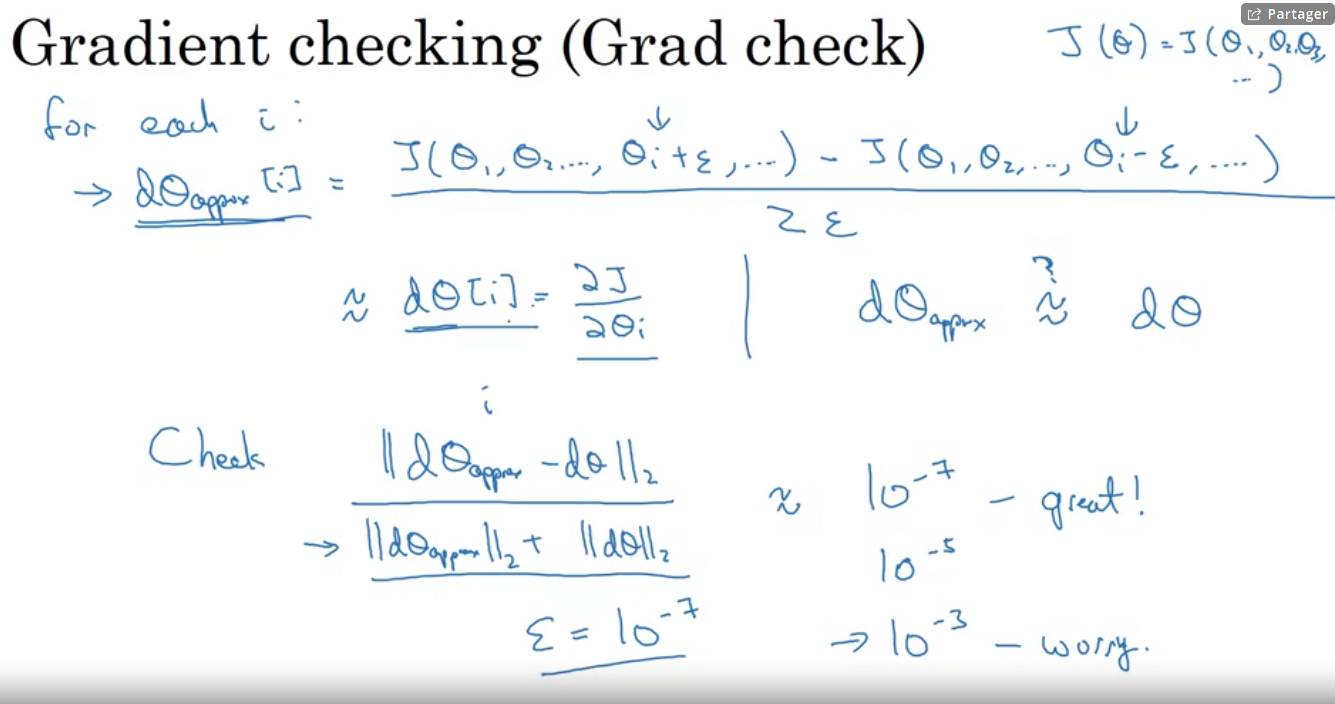 Partager
Gradient checking (Grad check)
J(θ) = J(θ₁, θ₂, θ₃, ...)
for each i:
→ dθ_approx[i] = (J(θ₁, θ₂, ..., θᵢ+ε, ...) - J(θ₁, θ₂, ..., θᵢ-ε, ....)) / 2ε
≈ dθ[i] = ∂J/∂θᵢ | dθ_approx ≈? dθ
i
Check ||dθ_approx - dθ||₂ / (||dθ_approx||₂ + ||dθ||₂) ≈ 10⁻⁷ - great!
10⁻⁵
ε = 10⁻⁷
→ 10⁻³ - worry.